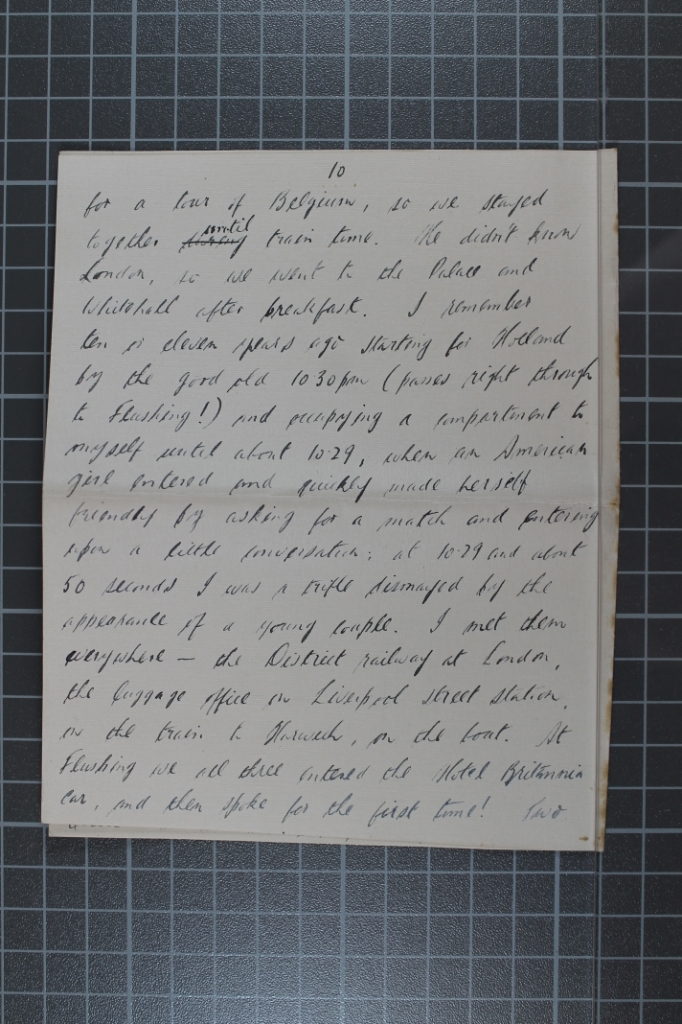 10
for a tour of Belgium, so we stayed
together until train time. He didn't know
London, so we went to the Palace and
Whitehall after breakfast. I remember
ten or eleven years ago starting for Holland
by the good old 10 30 pm (passes right through
to Flushing!) and occupying a compartment to
myself until about 10-29, when an American
girl entered and quickly made herself
friendly by asking for a match and entering
upon a little conversation: at 10-29 and about
50 seconds I was a trifle dismayed by the
appearance of a young couple. I met them
everywhere — the District railway at London,
the luggage office on Liverpool street station,
on the train to Harwich, on the boat. At
Flushing we all three entered the Hotel Britannia
car, and then spoke for the first time! Two